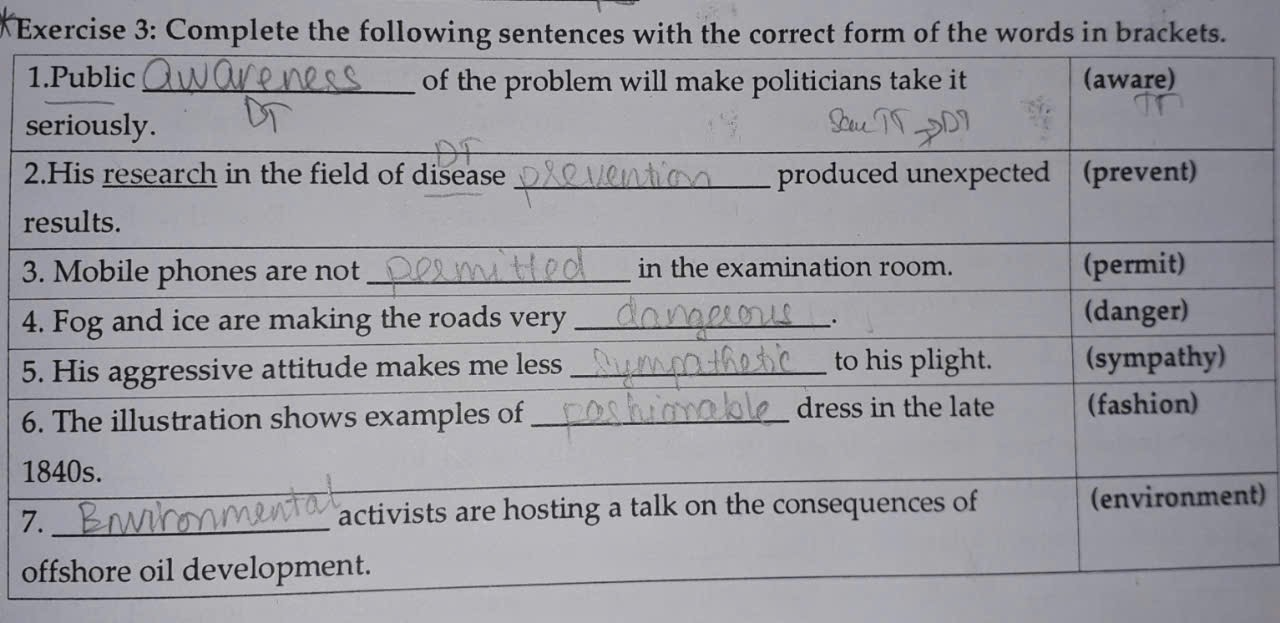 *Exercise 3: Complete the following sentences with the correct form of the words in brackets.
1.Public awareness of the problem will make politicians take it (aware)
DT TT
seriously. Sau TT → DT
DT
2.His research in the field of disease prevention produced unexpected (prevent)
results.
3. Mobile phones are not permitted in the examination room. (permit)
4. Fog and ice are making the roads very dangerous. (danger)
5. His aggressive attitude makes me less sympathetic to his plight. (sympathy)
6. The illustration shows examples of pashionable dress in the late (fashion)
1840s.
7. Environmental activists are hosting a talk on the consequences of (environment)
offshore oil development.